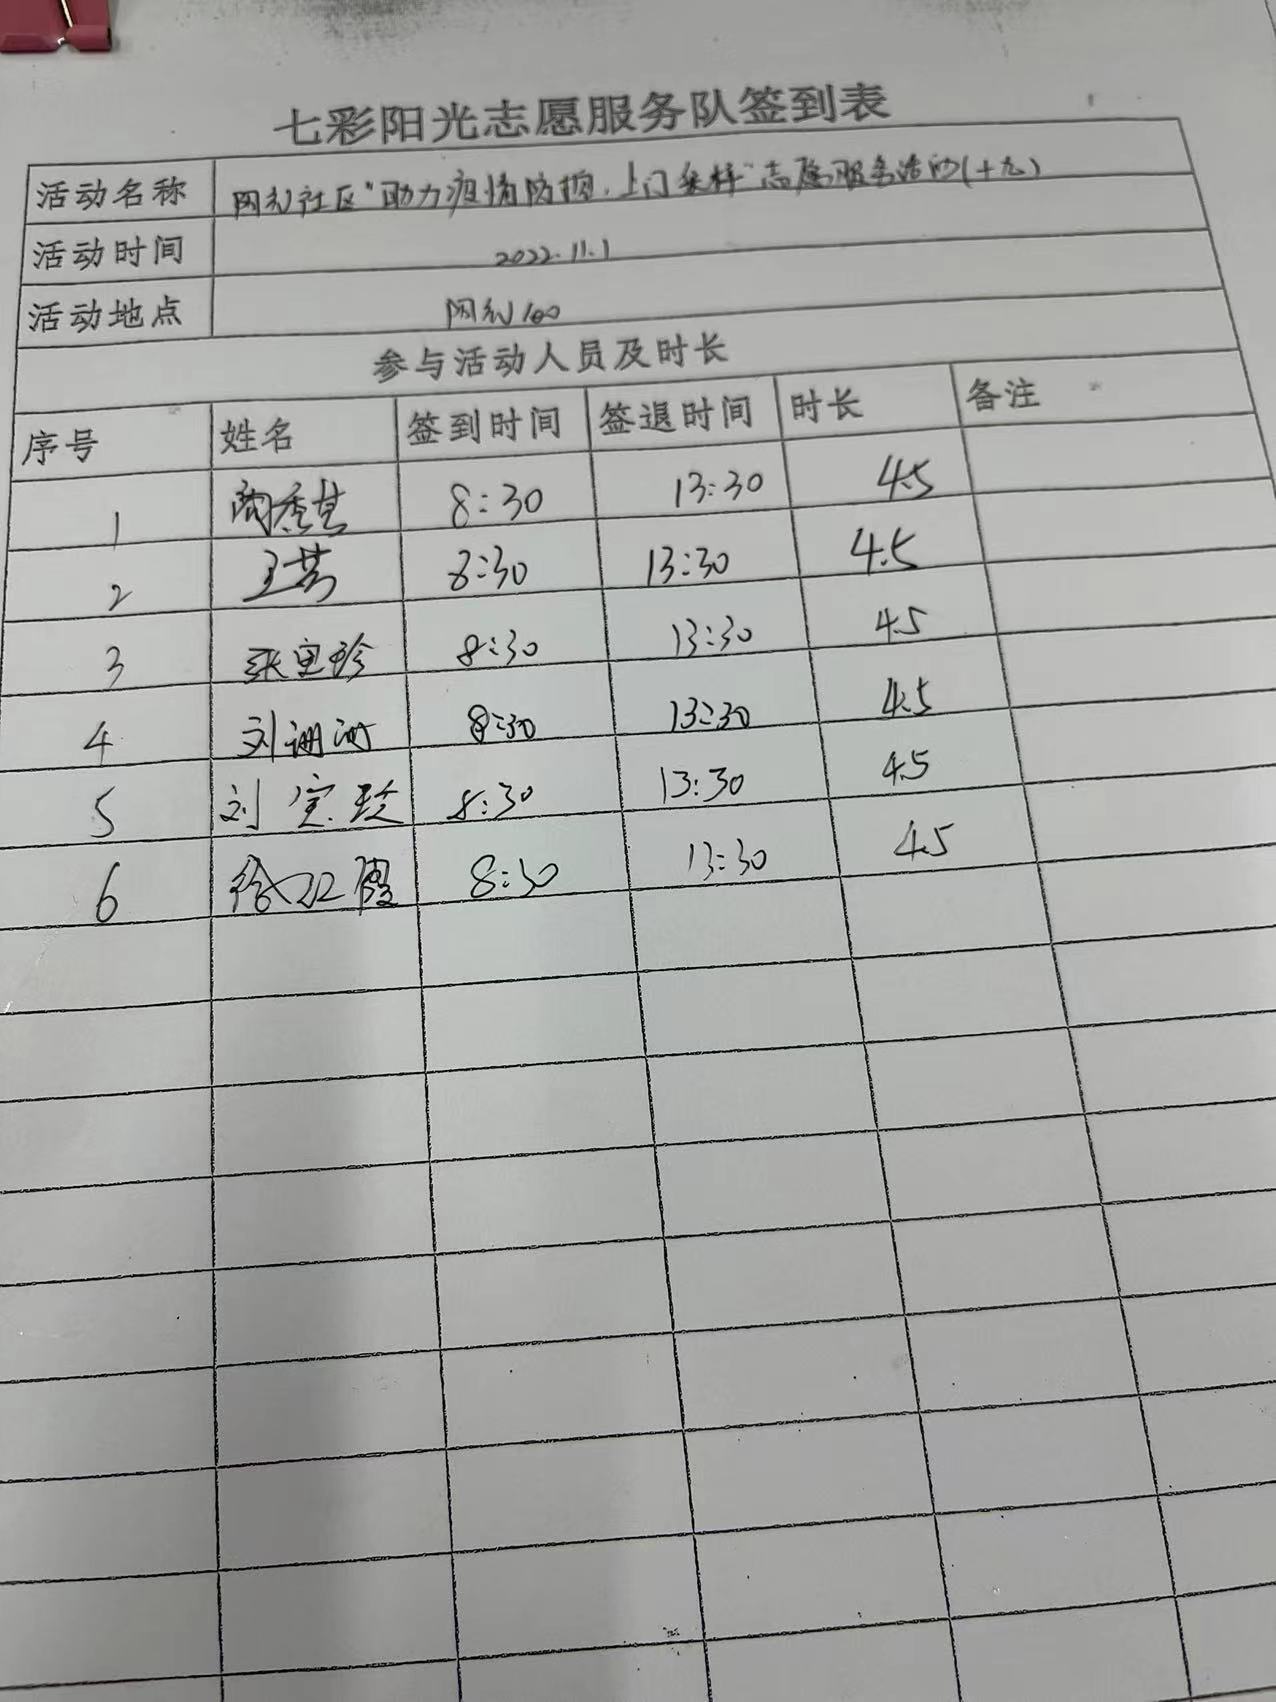 七彩阳光志愿服务队签到表
活动名称 社区"助力疫情防控，上门采样"志愿服务活动(十九)
活动时间 2022.11.1
活动地点 100
参与活动人员及时长
序号 姓名 签到时间 签退时间 时长 备注
1 陶秀 8:30 13:30 4.5
2 王 8:30 13:30 4.5
3 张宝珍 8:30 13:30 4.5
4 刘 8:30 13:30 4.5
5 刘宝 8:30 13:30 4.5
6 徐 8:30 13:30 4.5